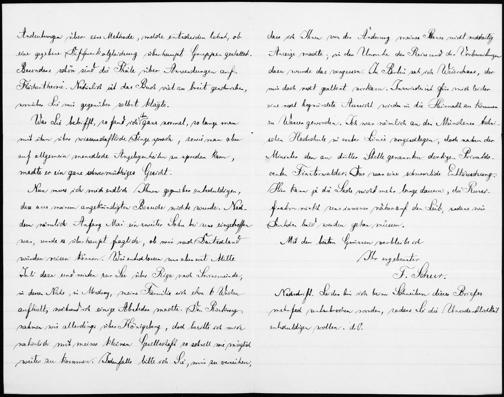 Andeutungen über eine Methode, welche entscheiden lehrt, ob
eine gegebene Differentialgleichung überhaupt Gruppen gestattet.
Besonders schön sind die Theile über Anwendungen auf
Flächentheorie. Natürlich ist das Buch viel zu breit geschrieben,
welches Lie mir gegenüber selbst klagte.
Was Lie betrifft, so fand ich ihn ganz normal, so lange man
mit ihm über wissenschaftliche Dinge sprach, sowie man aber
auf allgemein menschliche Angelegenheiten zu sprechen kam,
machte er ein ganz schwermüthiges Gesicht.
Nun muss ich mich endlich Ihnen gegenüber entschuldigen,
dass aus meinem angekündigten Besuche nichts wurde. Nach
dem nämlich Anfang Mai ein zweiter Sohn bei uns eingetroffen
war, wurde es überhaupt fraglich, ob wir nach Deutschland
würden reisen können. Wir entschlossen uns aber mit Mitte
Juli dazu und zwar per See über Riga nach
in deren Nähe, in meine Familie sich etwa 6 Wochen
aufhielt, während ich einige Abstecher machte. Den Rückweg
nahmen wir allerdings über Königsberg, doch beeilte ich mich
natürlich mit meiner kleinen Gesellschaft so schnell wie möglich
weiter zu kommen. Jedenfalls bitte ich Sie, mir zu verzeihen,
dass ich Ihnen von der Änderung meines Planes nicht rechtzeitig
Anzeige machte; in der Unruhe der Reise und der Vorbereitungen
dazu wurde das vergessen. In Berlin sah ich Weierstrass, der
mir doch recht gealtert vorkam. Inzwischen ist für mich leider
eine recht begründete Aussicht wieder in die Heimath zu kommen
zu Wasser geworden. Ich war nämlich an der Münchener tech-
nischen Hochschule in erster Linie vorgeschlagen, doch nahm der
Minister den an dritter Stelle genannten dortigen Privatdo-
centen Finsterwalder. Das war eine schmerzliche Enttäuschung.
Hier kann ja die Sache nicht mehr lange dauern, die Russi-
fication rückt uns immer näher auf den Leib,
Mit den besten Grüssen verbleibe ich
Ihr ergebenster
F. Schur.
Nachschrift. Leider bin ich beim Schreiben dieses Briefes
mehrfach unterbrochen worden, sodass Sie die Unordentlichkeit
entschuldigen wollen. d. O.